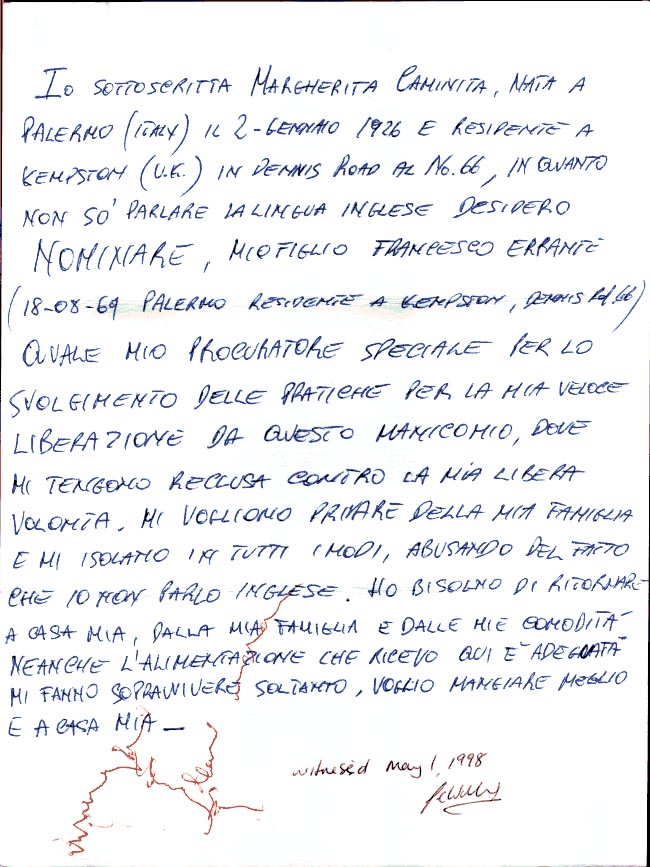 IO SOTTOSCRITTA MARGHERITA CAMINITA, NATA A
PALERMO (ITALY) IL 2-GENNAIO 1926 E RESIDENTE A
KEMPSTON (U.K.) IN DENNIS ROAD AL NO.66, IN QUANTO
NON SO' PARLARE LA LINGUA INGLESE DESIDERO
NOMINARE, MIO FIGLIO FRANCESCO ERRANTE
(18-08-69 PALERMO RESIDENTE A KEMPSTON, DENNIS Rd. 66)
QUALE MIO PROCURATORE SPECIALE PER LO
SVOLGIMENTO DELLE PRATICHE PER LA MIA VELOCE
LIBERAZIONE DA QUESTO MANICOMIO, DOVE
MI TENGONO RECLUSA CONTRO LA MIA LIBERA
VOLONTA. MI VOGLIONO PRIVARE DELLA MIA FAMIGLIA
E MI ISOLANO IN TUTTI I MODI, ABUSANDO DEL FATTO
CHE IO NON PARLO INGLESE. HO BISOGNO DI RITORNARE
A CASA MIA, DALLA MIA FAMIGLIA E DALLE MIE COMODITA'
NEANCHE L'ALIMENTAZIONE CHE RICEVO QUI E' ADEGUATA
MI FANNO SOPRAVVIVERE SOLTANTO, VOGLIO MANGIARE MEGLIO
E A CASA MIA —
witnesed May 1, 1998